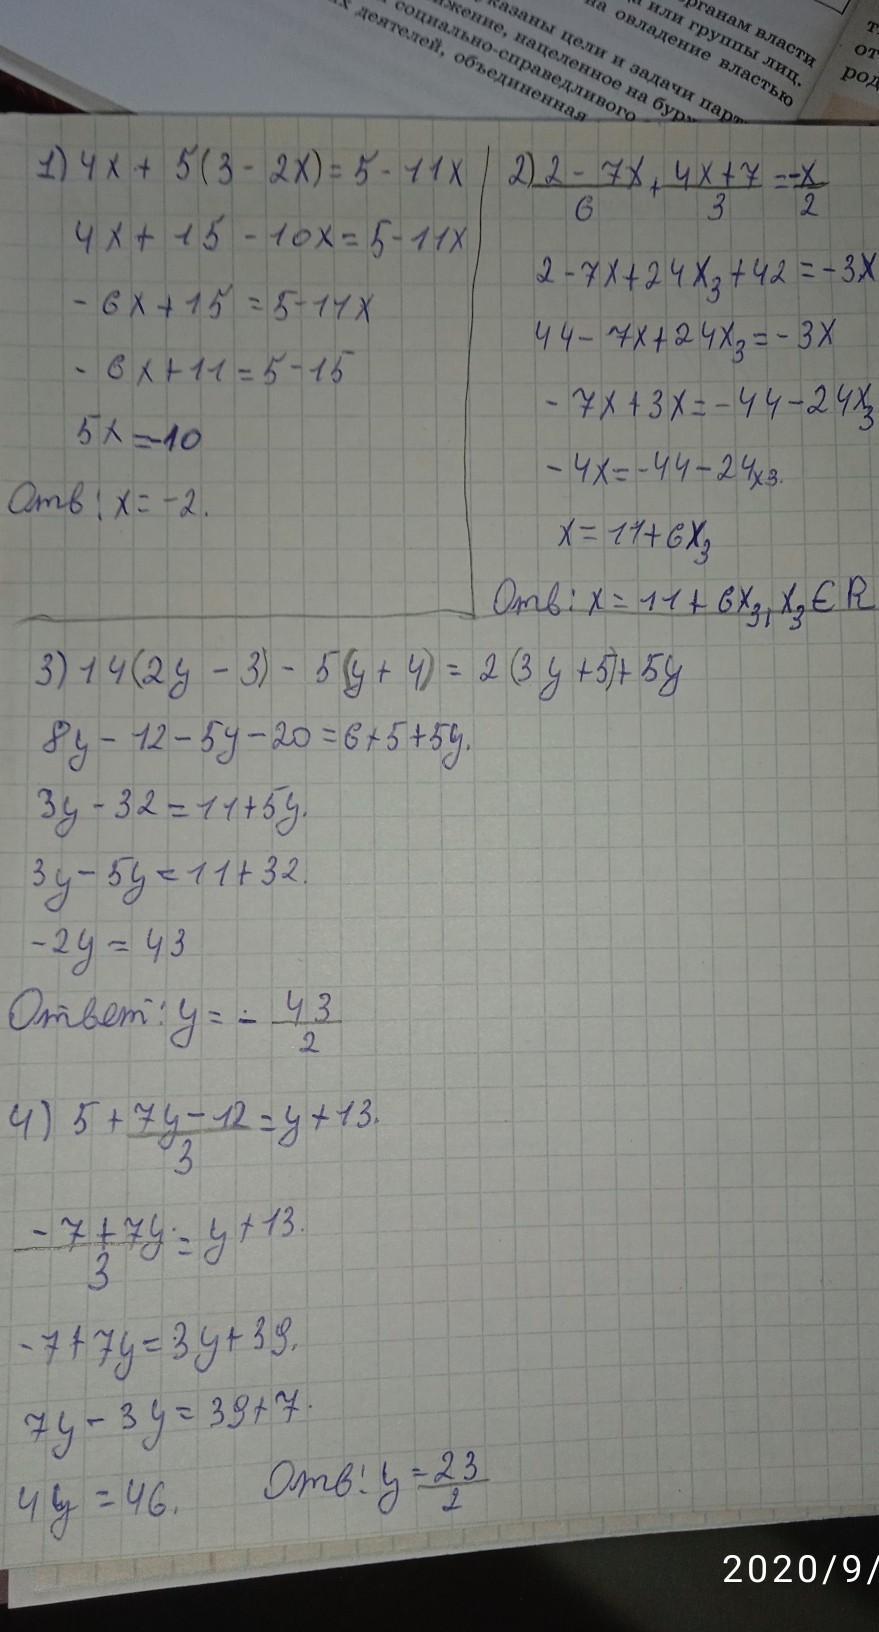 органам власти
или группы лиц.
на овладение властью
указаны цели и задачи парт
движение, нацеленное на бурж
социально-справедливого
деятелей, объединенная
от
род
1) 4x + 5(3 - 2x) = 5 - 11x
4x + 15 - 10x = 5 - 11x
- 6x + 15 = 5 - 11x
- 6x + 11 = 5 - 15
5x = -10
Отв: x = -2.
2) (2 - 7x)/6 + (4x + 7)/3 = -x/2
2 - 7x + 24x₃ + 42 = -3x
44 - 7x + 24x₃ = - 3x
- 7x + 3x = -44 - 24x₃
- 4x = -44 - 24x3.
x = 11 + 6x₃
Отв: x = 11 + 6x₃, x₃ ∈ R
3) 14(2y - 3) - 5(y + 4) = 2(3y + 5) + 5y
8y - 12 - 5y - 20 = 6 + 5 + 5y.
3y - 32 = 11 + 5y.
3y - 5y = 11 + 32.
-2y = 43
Ответ: y = - 43/2
4) 5 + (7y - 12)/3 = y + 13.
(-7 + 7y)/3 = y + 13.
-7 + 7y = 3y + 39.
7y - 3y = 39 + 7.
4y = 46.
Отв: y = 23/2
2020/9/